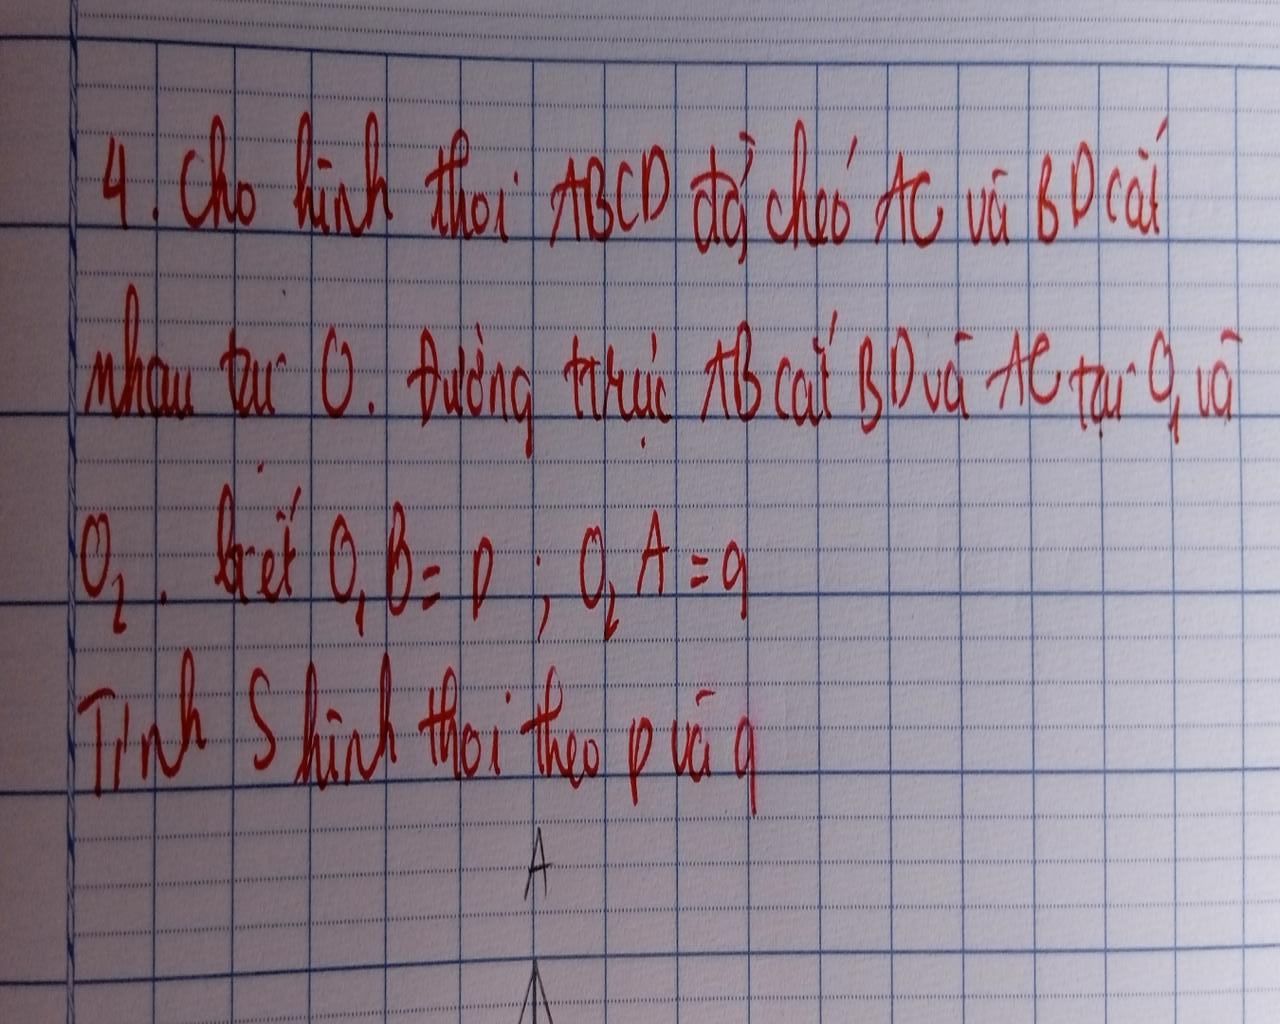 4. Cho hình thoi ABCD đg chéo AC và BD cắt
nhau tại O. Đường ttrực AB cắt BD và AC tại O₁ và
O₂. biết O₁B = p ; O₂A = q
Tính S hình thoi theo p và q
A